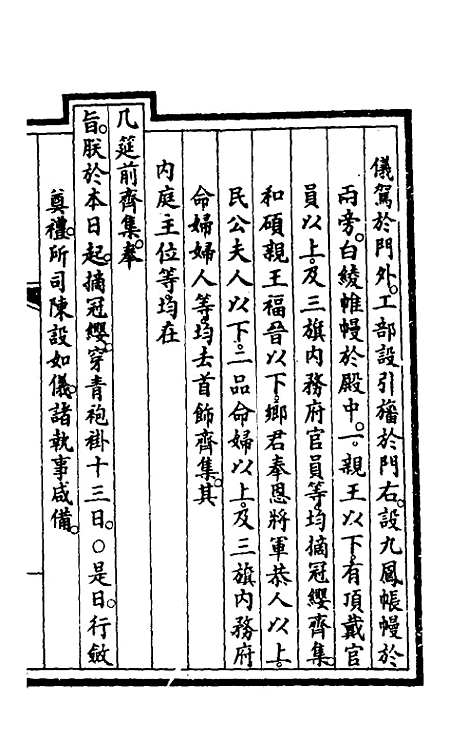 儀駕於門外。工部設引旛於門右。設九鳳帳幔於
兩旁。白綾帷幔於殿中。一。親王以下。有頂戴官
員以上。及三旗內務府官員等。均摘冠纓齊集。
和碩親王福晉以下。鄉君奉恩將軍恭人以上。
民公夫人以下。二品命婦以上。及三旗內務府
命婦婦人等。均去首飾齊集。其
內庭主位等均在
几筵前齊集。奉
旨。朕於本日起。摘冠纓。穿青袍褂十三日。○是日。行斂
奠禮。所司陳設如儀。諸執事咸備。